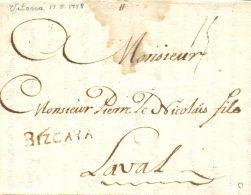 Vitoria, 17.5.1758
"
15
a Monsieur
Monsieur Pierre De Nicolais fils
BIZCAYA
Laval